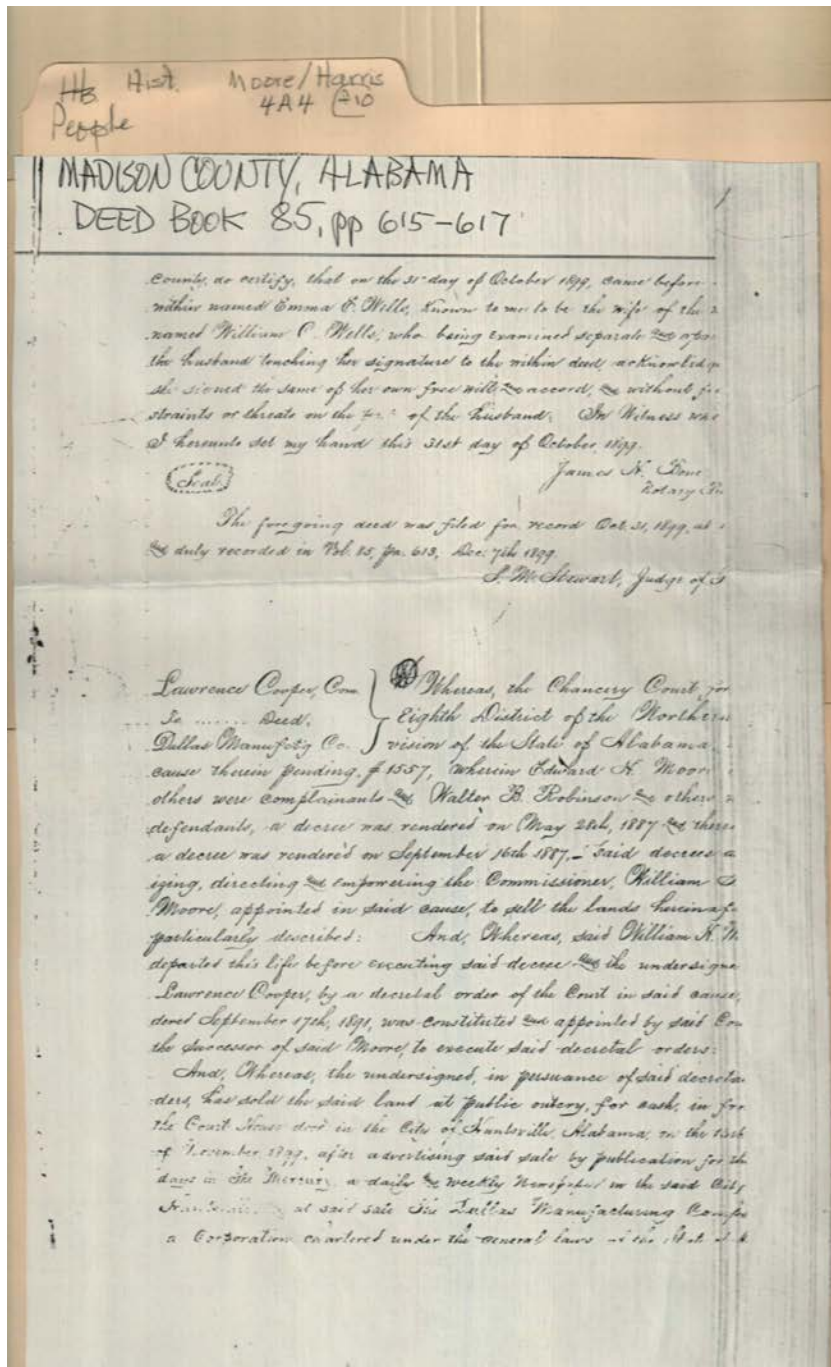 Hist. Moore/Harris
4A4
People
MADISON COUNTY, ALABAMA
DEED BOOK 85, pp 615-617
County, do certify, that on the 31st day of October 1899, came before
within named Emma F. Wells, known to me to be the wife of the
named William C. Wells, who being examined separate and apar
the husband touching her signature to the within deed acknowledg
she signed the same of her own free will and accord, and without fe
straints or threats on the part of the husband. In Witness whe
I hereunto set my hand this 31st day of October, 1899.
Seal
James H. Bone
Notary Pu
The foregoing deed was filed for record Oct. 31, 1899, at
and duly recorded in Vol. 85, pa. 613, Dec. 7th 1899.
S. M. Stewart, Judge of P
Lawrence Cooper, Com.
To ...... Deed,
Dallas Manufctg Co.
Whereas, the Chancery Court, for
Eighth District of the Northern
vision of the State of Alabama,
cause therein pending, # 1557, wherein Edward H. Moor
others were complainants and Walter B. Robinson and others
defendants, a decree was rendered on May 28th, 1887 and there
a decree was rendered on September 16th 1887, - said decrees a
izing, directing and empowering the Commissioner, William
Moore, appointed in said cause, to sell the lands hereinaf
particularly described: And, Whereas, said William H. M
departed this life before executing said decree and the undersigne
Lawrence Cooper, by a decretal order of the Court in said cause,
dered September 17th, 1891, was constituted and appointed by said Cou
the successor of said Moore, to execute said decretal orders:
And, Whereas, the undersigned, in persuance of said decreta
ders, has sold the said land at public outcry, for cash, in fro
the Court House door in the City of Huntsville, Alabama, on the
of November 1899, after advertising said sale by publication for th
days in The Mercury, a daily and weekly Newspaper in the said City
at said sale The Dallas Manufacturing Comp
a Corporation chartered under the general laws of the State of